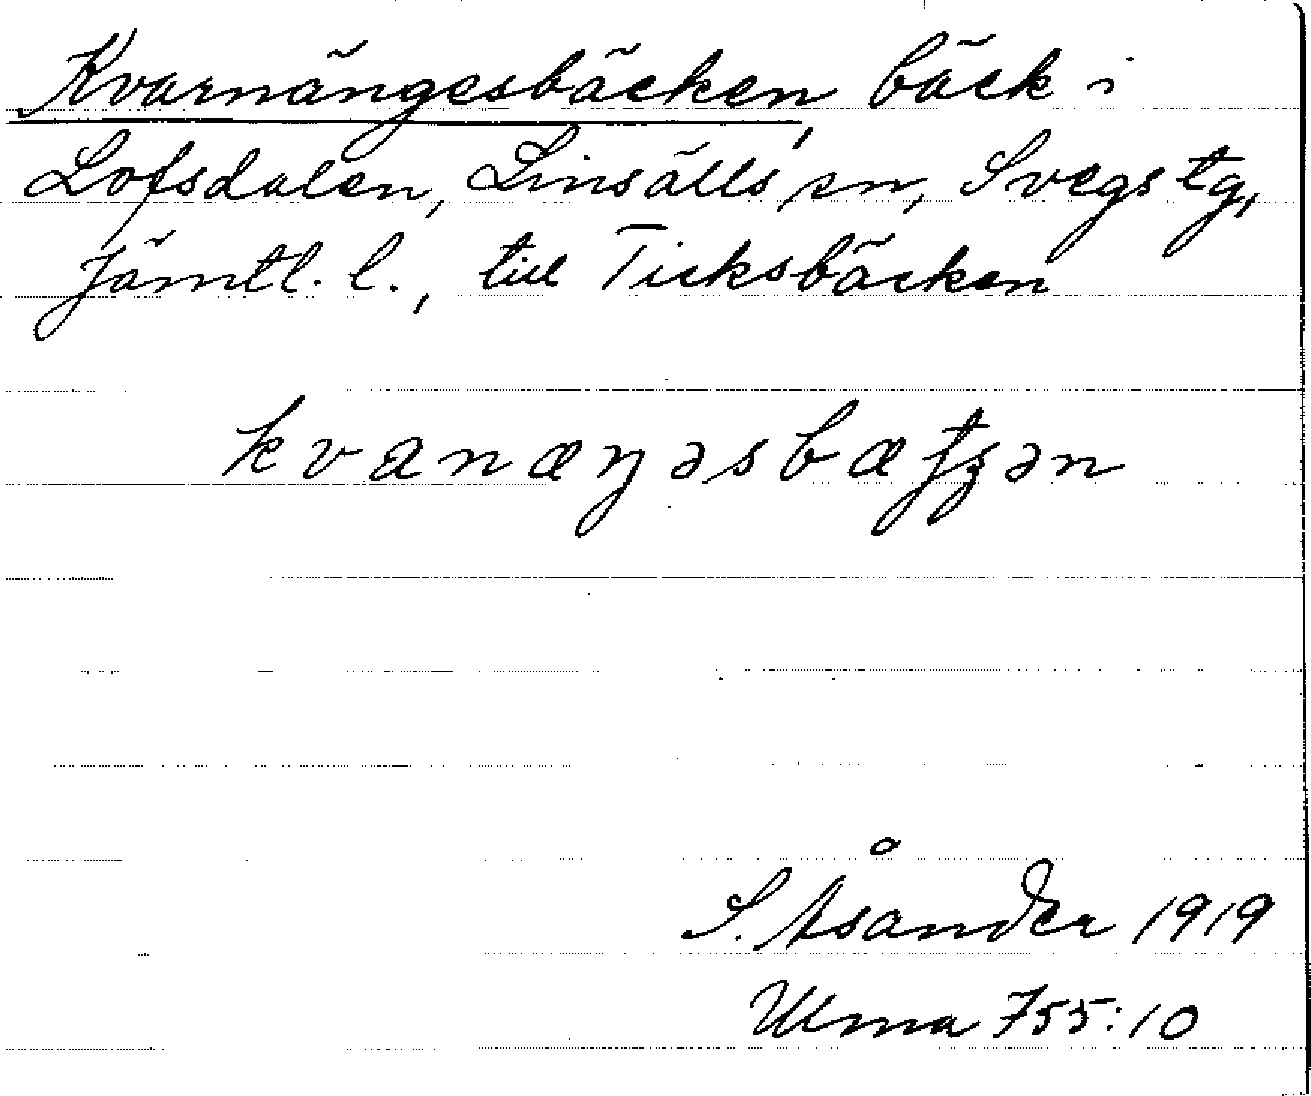 Kvarnängesbäcken, bäck i
Lofsdalen, Linsälls sn, Svegs tg,
Jämtl. l., till Ticksbäcken
kvanæŋəsbæʈʂən
S. Åsander 1919
Ulma 755:10